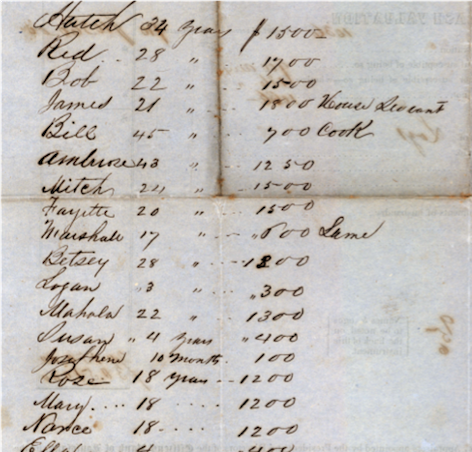 Hutch 24 years $1500
Red .. 28 " 1700
Bob 22 " ... 1500
James 21 " ... 1800 House Servant
Bill 45 " .. 700 Cook
Ambrose 43 " ... 1250
Mitch 24 " ... 1500
Fayette 20 " ... 1500
Marshall 17 " ... "600 Lame
Betsey 28 " ... 1200
Logan "3 " "300
Mahala 22 " 1300
Susan "4 years "400
Josephine 10 months 100
Rose 18 years -- 1200
Mary .... 18 ..... 1200
Nance 18 .... 1200